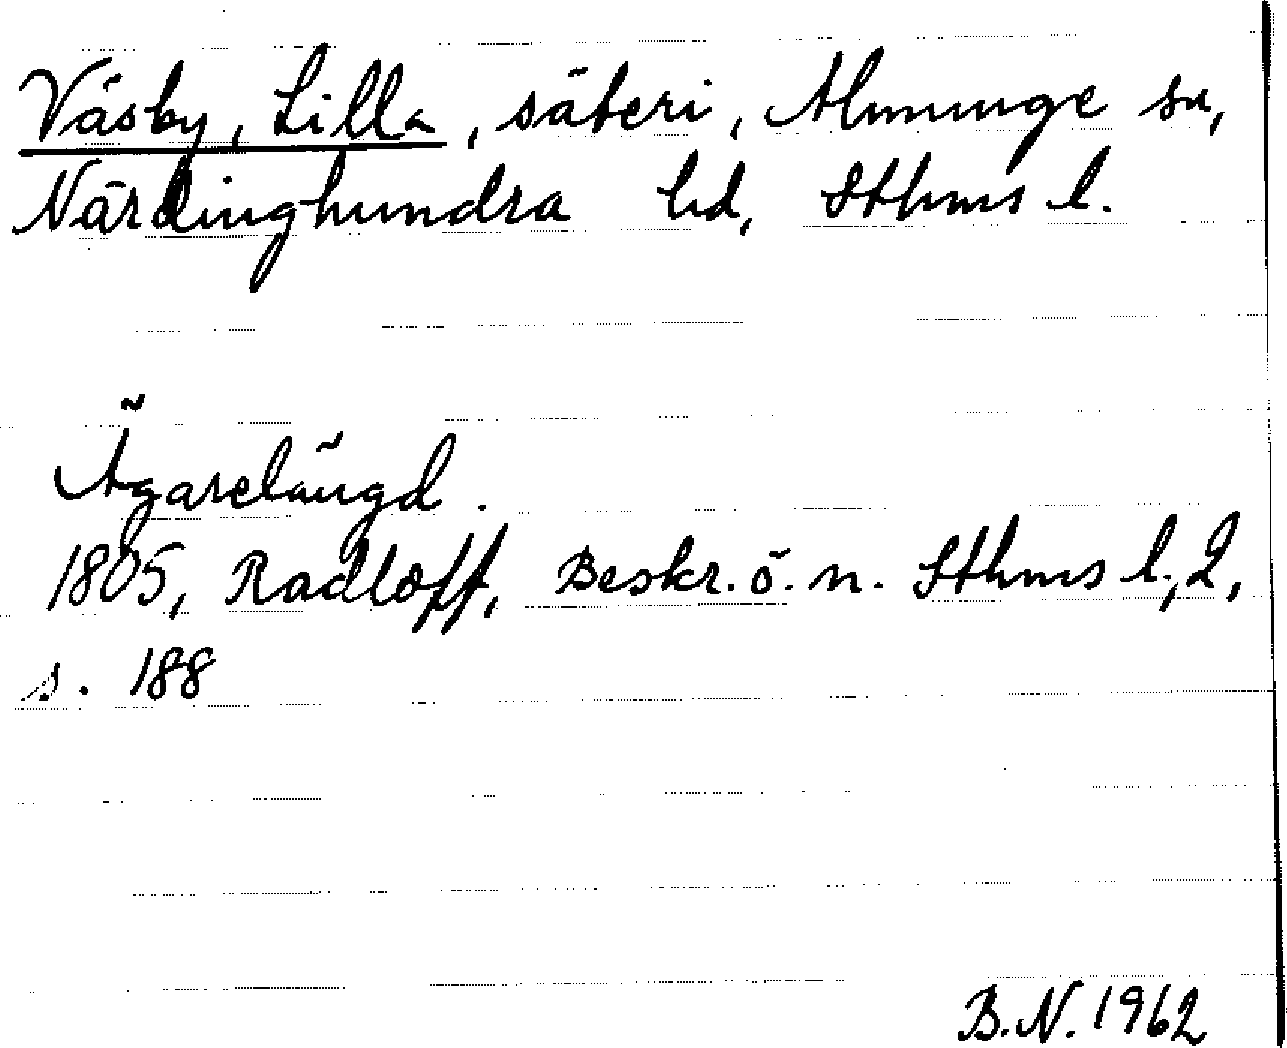 Väsby, Lilla, säteri, Almunge sn,
Närdinghundra hd, Sthms l.
Ägarelängd.
1805, Radloff, Beskr. ö. n. Sthms l, 2,
s. 188
B.N. 1962